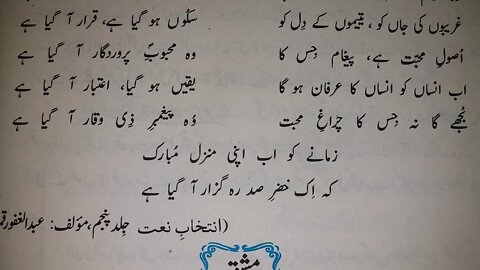 غریبوں کی جاں کو ، یتیموں کے دِل کو سکُوں ہو گیا ہے، قرار آ گیا ہے
اُصولِ محبّت ہے، پیغام جِس کا وہ محبوبِ پروردگار آ گیا ہے
اب انساں کو انساں کا عرفان ہو گا یقیں ہو گیا، اعتبار آ گیا ہے
بُجھے گا نہ جِس کا چراغِ محبت وُہ پیغمبرِ ذِی وقار آ گیا ہے
زمانے کو اب اپنی منزل مُبارک
کہ اِک خضرِ صد رہ گزار آ گیا ہے
(انتخابِ نعت جِلد پنجم، مؤلف: عبدالغفور
مشق